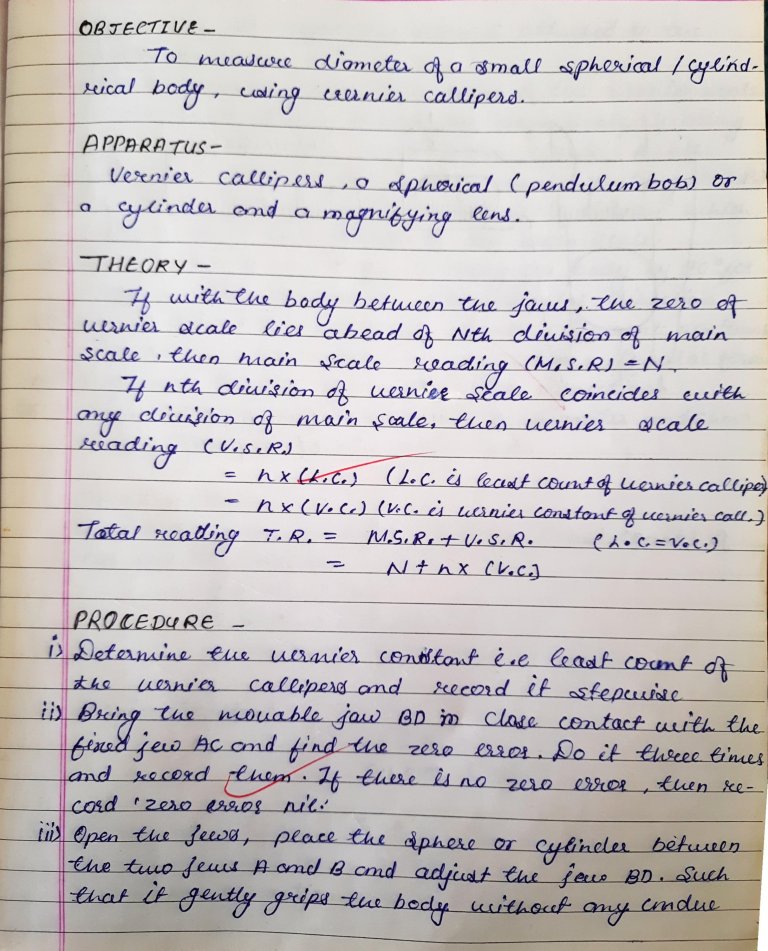 OBJECTIVE -
To measure diameter of a small spherical / cylind-
rical body, using vernier callipers.
APPARATUS -
Vernier callipers, a spherical (pendulum bob) or
a cylinder and a magnifying lens.
THEORY -
If with the body between the jaws, the zero of
vernier scale lies ahead of Nth division of main
scale, then main scale reading (M.S.R) = N.
If nth division of vernier scale coincides with
any division of main scale, then vernier scale
reading (V.S.R.)
= n x (L.C.) (L.C. is least count of vernier callipe)
= n x (V.C.) (V.C. is vernier constant of vernier call.)
Total reading T.R. = M.S.R. + V.S.R. (L.C. = V.C.)
= N + n x (V.C.)
PROCEDURE -
i) Determine the vernier constant i.e least count of
the vernier callipers and record it stepwise
ii) Bring the movable jaw BD in close contact with the
fixed jaw AC and find the zero error. Do it three times
and record them. If there is no zero error, then re-
cord 'zero error nil.'
iii) Open the jaws, place the sphere or cylinder between
the two jaws A and B and adjust the jaw BD. Such
that it gently grips the body without any undue